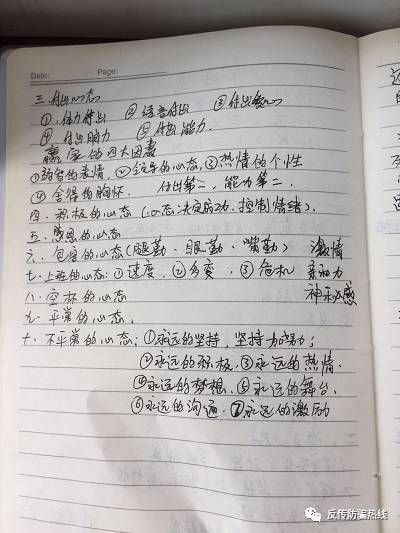 Date: Page:
三.付出心态
①.体力付出 ②语言付出 ③付出爱心
④ 付出脑力 ⑤付出能力.
赢家的四大因素
①的表情 ②的心态,③热情的个性
④舍得的胸怀. 付出第一,能力第二.
四.积极的心态(心态决定成功.控制情绪).
五.感恩的心态
六.包容的心态(腿勤、眼勤、嘴勤) 激情
七.上班的心态:①速度.②多变.③危机 亲和力
八.空杯的心态 神秘感
九.平常的心态.
十.不平常的心态:①永远的坚持,坚持加努力;
②永远的积极.③永远的热情.
④永远的梦想.⑤永远的舞台.
⑥永远的沟通.⑦永远的激励
反传防骗热线